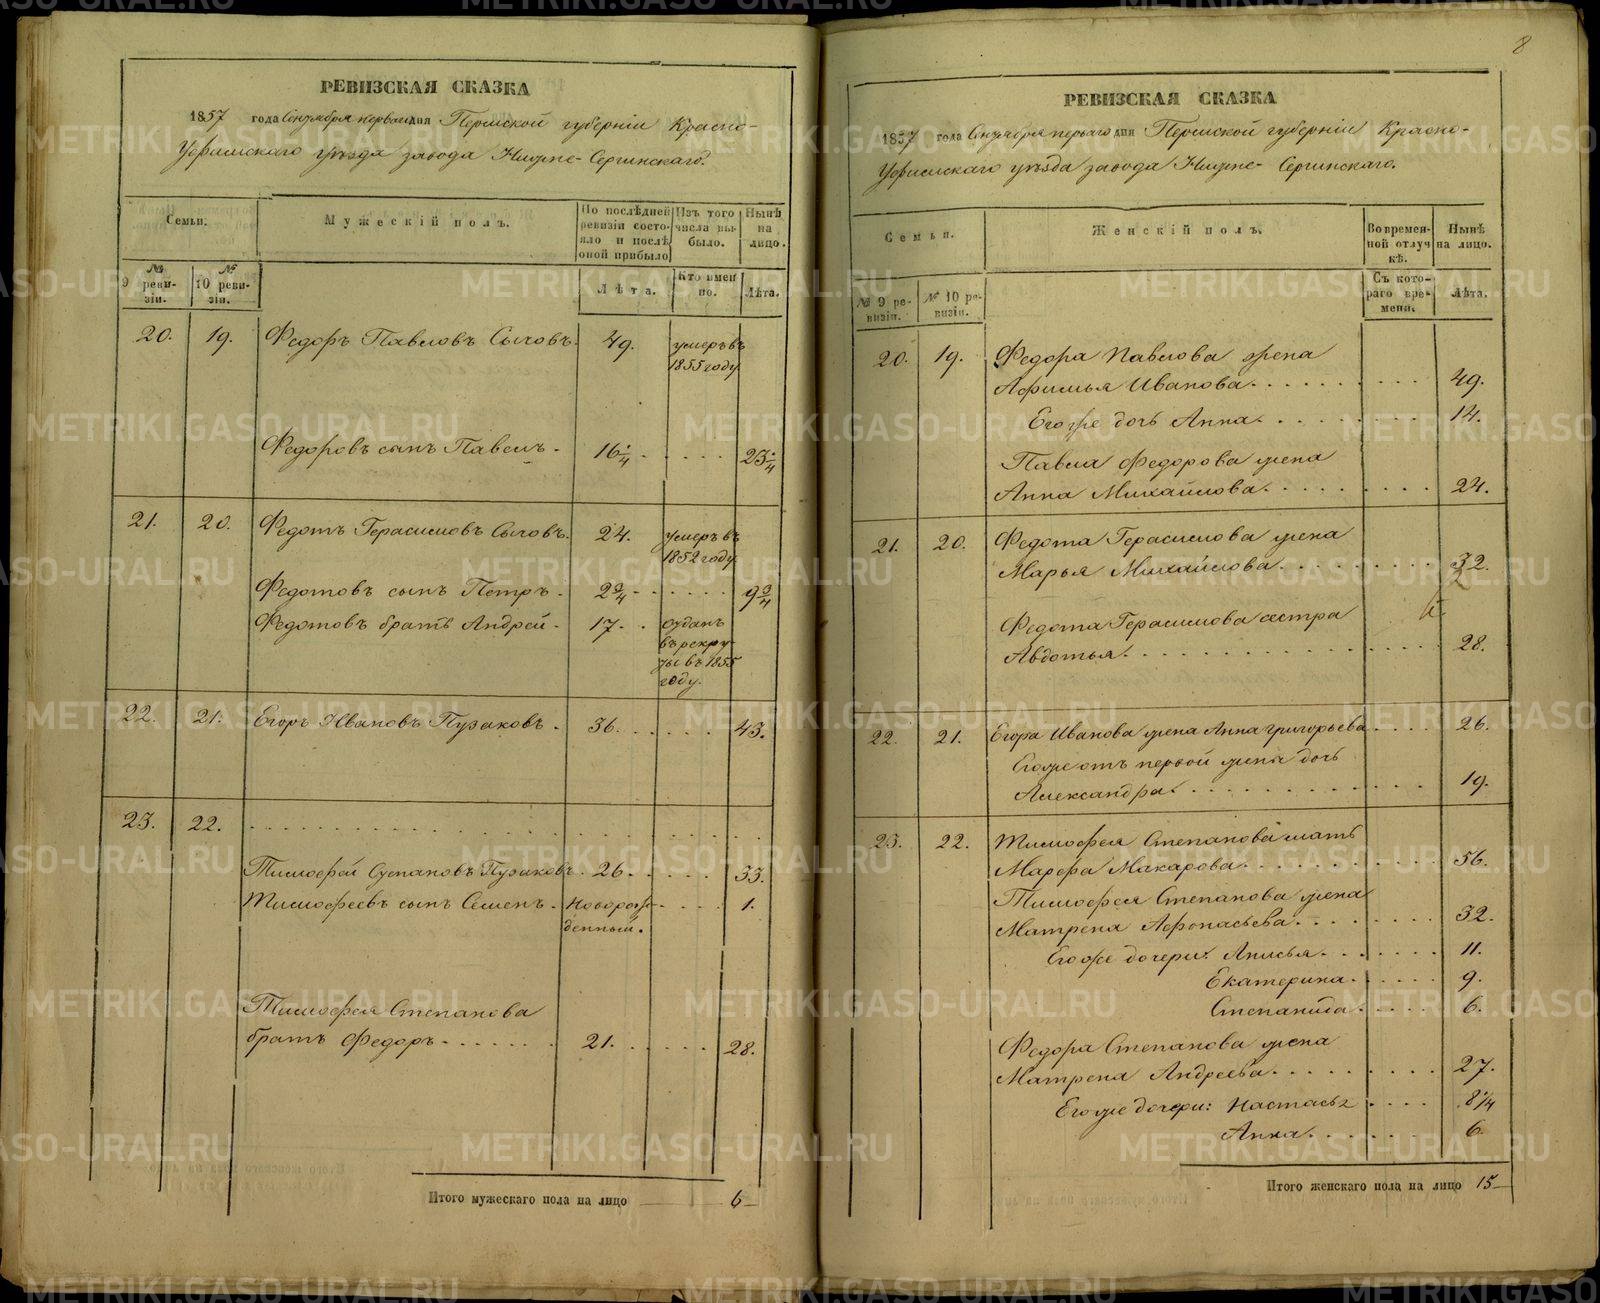 8
РЕВИЗСКАЯ СКАЗКА
1857 года Сентября перваго дня Пермской губерніи Красно-
Уфимскаго уѣзда завода Нижне-Сергинскаго.
Семьи.
Мужескій полъ.
По послѣдней ревизіи состояло и послѣ оной прибыло
Изъ того числа выбыло.
Нынѣ на лицо.
№ 9 ревизіи.
№ 10 ревизіи.
Лѣта.
Кто именно.
Лѣта.
20. 19. Федоръ Павловъ Сычовъ. 49. умеръ въ
1855 году
Федоровъ сынъ Павелъ. 16¼ 23¼
21. 20. Федотъ Герасимовъ Сычовъ. 24. умеръ въ
1852 году
Федотовъ сынъ Петръ. 2¾ 9¾
Федотовъ братъ Андрей. 17. отданъ
въ рекру-
ты въ 1855
году.
22. 21. Егоръ Ивановъ Пузаковъ. 36. 43.
23. 22.
Тимофей Степановъ Пузаковъ. 26. 33.
Тимофеевъ сынъ Семенъ. Новорож- 1.
денный.
Тимофея Степанова
братъ Федоръ 21. 28.
Итого мужескаго пола на лицо 6
РЕВИЗСКАЯ СКАЗКА
1857 года Сентября перваго дня Пермской губерніи Красно-
Уфимскаго уѣзда завода Нижне-Сергинскаго.
Семьи.
Женскій полъ.
Во временной отлучкѣ.
Нынѣ на лицо.
№ 9 ревизіи.
№ 10 ревизіи.
Съ котораго времени.
Лѣта.
20. 19. Федора Павлова жена
Афимья Иванова 49.
Его же дочь Анна 14.
Павла Федорова жена
Анна Михайлова 24.
21. 20. Федота Герасимова жена
Марья Михайлова 32.
Федота Герасимова сестра
Авдотья 28.
22. 21. Егора Иванова жена Анна Григорьева 26.
Его же отъ первой жены дочь
Александра 19.
23. 22. Тимофея Степанова мать
Марфа Макарова 56.
Тимофея Степанова жена
Матрена Афонасьева 32.
Его же дочери: Анисья 11.
Екатерина 9.
Степанида 6.
Федора Степанова жена
Матрена Андреева 27.
Его же дочери: Настасья 8¼
Анна 6.
Итого женскаго пола на лицо 15
METRIKI.GASO-URAL.RU